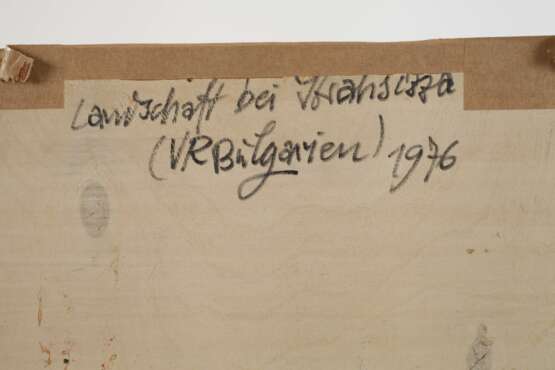 Landschaft bei
(VR Bulgarien) 1976